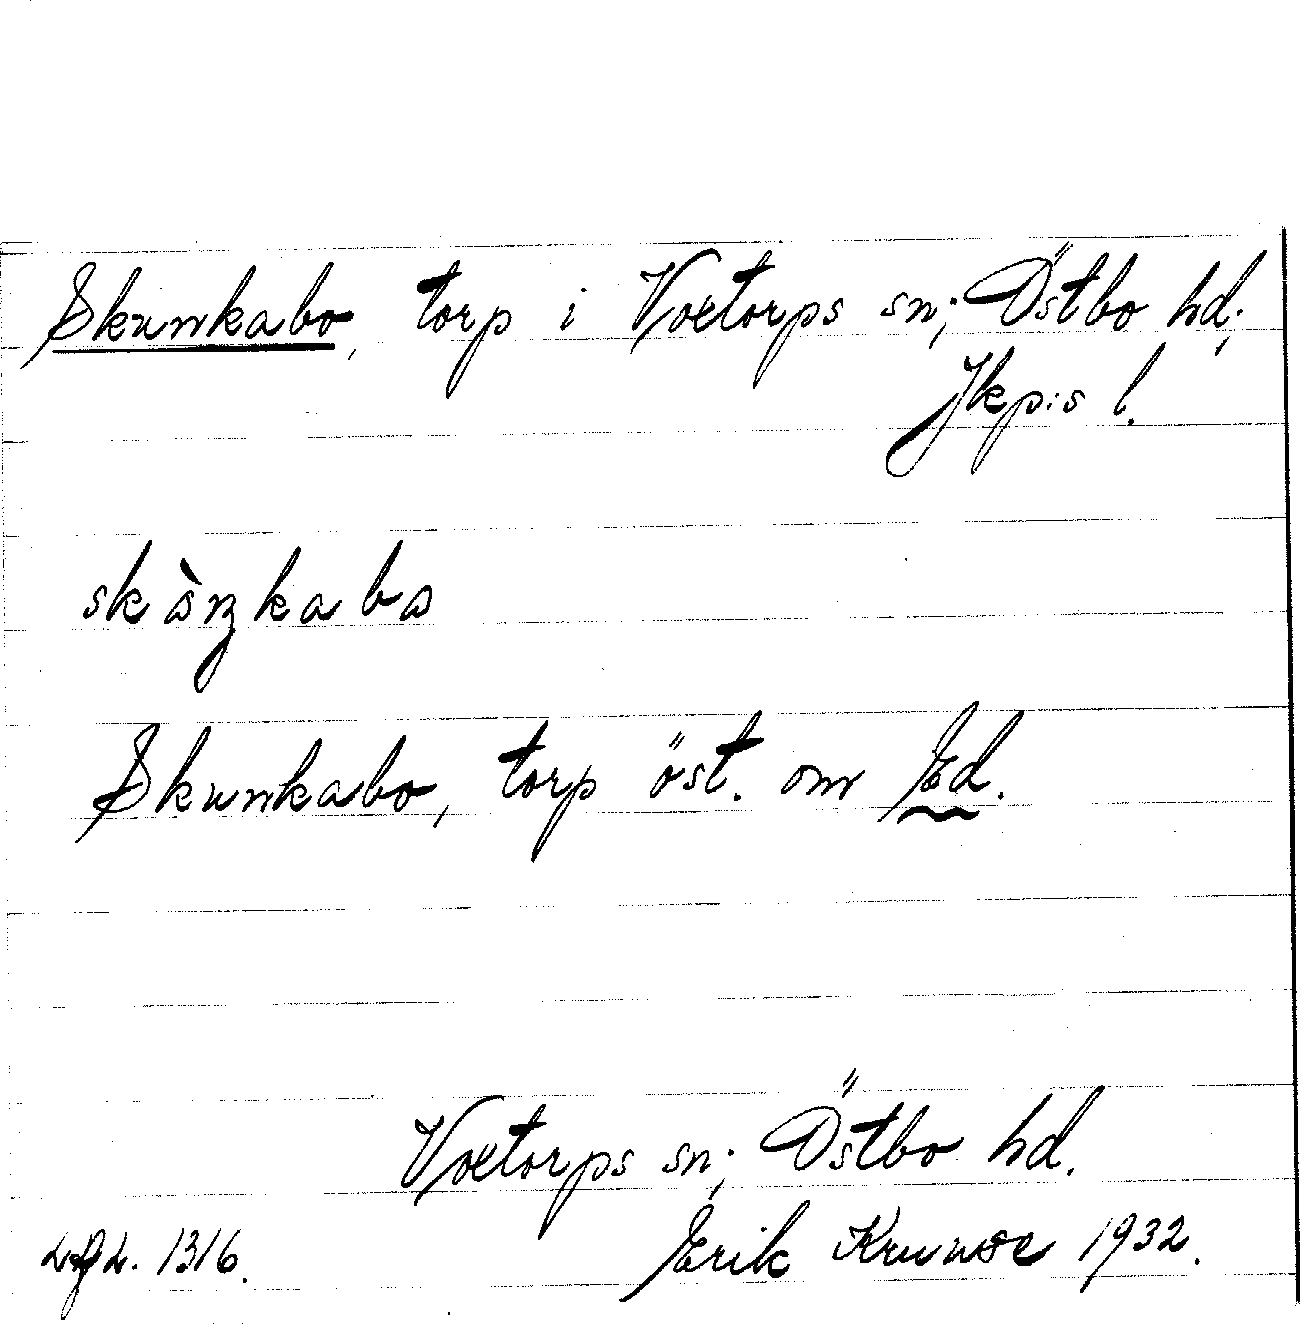 Skunkabo, torp i Voxtorps sn; Östbo hd;
Jkp:s l.
Skunkabo, torp öst. om Ed.
Voxtorps sn; Östbo hd.
1316. Erik Kruuse 1932.